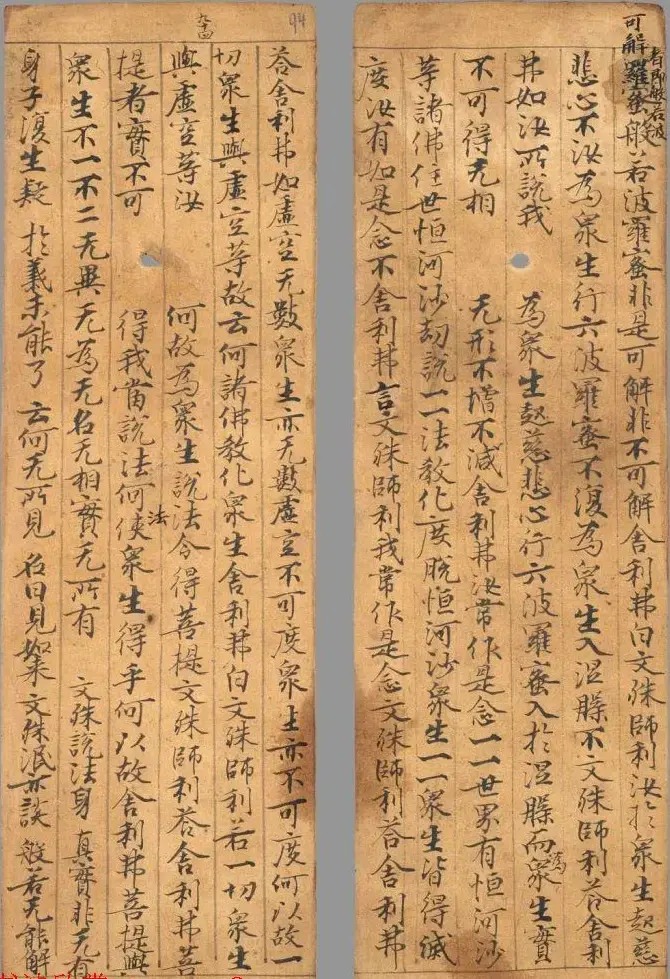 可解
者即般若波
羅蜜般若波羅蜜非是可解非不可解舍利弗白文殊師利汝於衆生起慈
悲心不汝為衆生行六波羅蜜不復為衆生入涅槃不文殊師利荅舍利
弗如汝所說我 為衆生起慈悲心行六波羅蜜入於涅槃而衆生實
為
不可得无相 无形不增不減舍利弗汝常作是念一一世界有恒河沙
等諸佛住世恒河沙劫說一一法教化度脫恒河沙衆生一一衆生皆得滅
度汝有如是念不舍利弗言文殊師利我常作是念文殊師利荅舍利弗
九十四
94
荅舍利弗如虛空无數衆生亦无數虛空不可度衆生亦不可度何以故一
切衆生與虛空等故云何諸佛教化衆生舍利弗白文殊師利若一切衆生
與虛空等汝 何故為衆生說法令得菩提文殊師利荅舍利弗菩
法
提者實不可 得我當說法何使衆生得乎何以故舍利弗菩提與
衆生不一不二无異无為无名无相實无所有 文殊說法身 真實非无有
身子復生疑 於義未能了 云何无所見 名曰見如來 文殊泯亦談 般若无能解